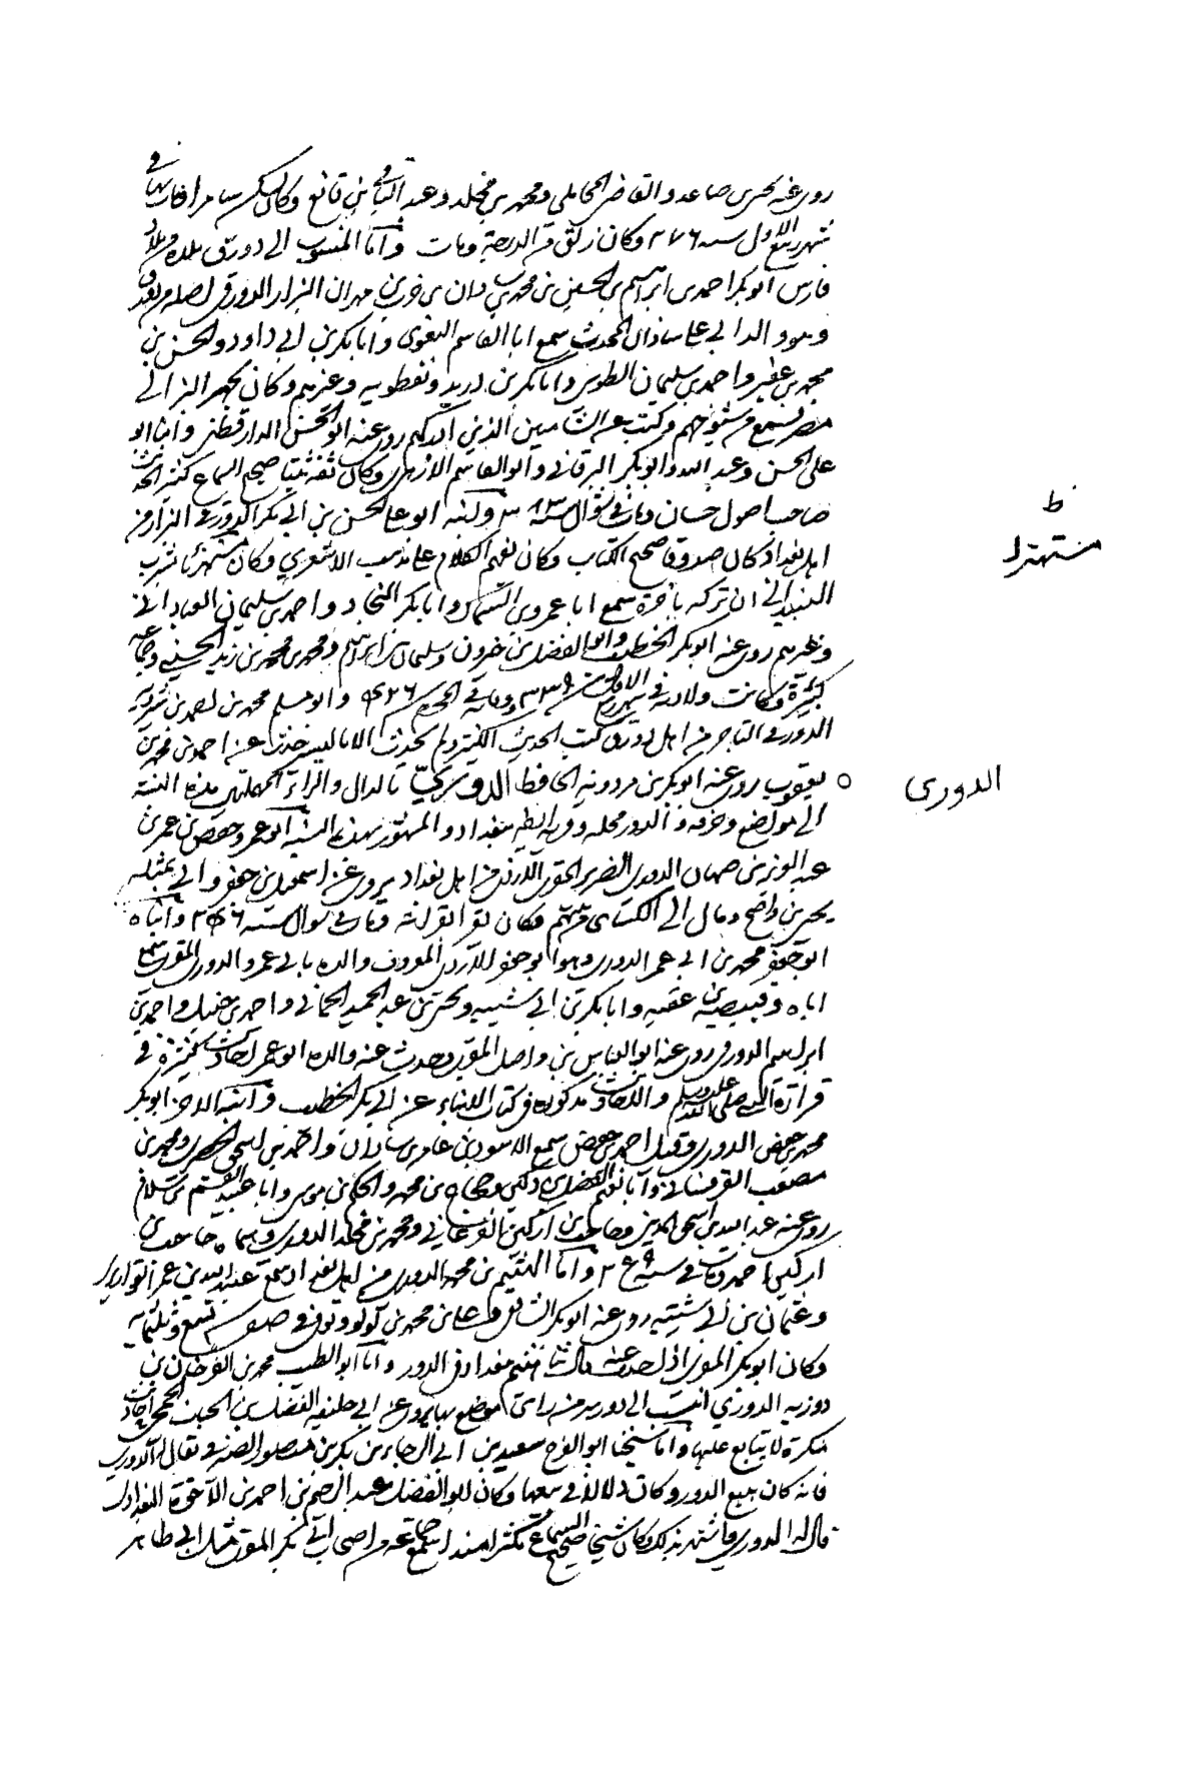 روى عنه يحيى بن صاعد والقاضي المحاملي ومحمد بن مخلد وعبد الباقي بن قانع وكان يسكن سامرا ومات بها في
شهر ربيع الاول سنة ٢٧٦ وكان زلق من الدرجة ومات واما المنسوب الى دورق بلدة من بلاد
فارس ابو بكر احمد بن ابراهيم بن الحسن بن محمد بن شاذان بن حرب بن مهران البزاز الدورقي اصله من دورق
وهو والد ابي علي بن شاذان المحدث سمع ابا القاسم البغوي وابا بكر بن ابي داود والحسن بن
محمد بن عفير واحمد بن سليمان الطوسي وابا بكر بن دريد ونفطويه وغيرهم وكان يجهز البز الى
مصر فسمع من شيوخهم وكتب عن الشاميين الذين ادركهم روى عنه ابو الحسن الدارقطني وابناه ابو
علي الحسن وعبد الله وابو بكر البرقاني وابو القاسم الازهري وكان ثقة ثبتا صحيح السماع كثير الحديث
صاحب اصول حسان ومات في شوال سنة ٣٨٣ وابنه ابو علي الحسن بن ابي بكر الدورقي البزاز من
اهل بغداد كان صدوقا صحيح الكتاب وكان يفهم الكلام على مذهب الاشعري وكان مشتهرا بشرب
النبيذ الى ان تركه باخرة سمع ابا عمرو بن السماك وابا بكر النجاد واحمد بن سليمان العباداني
وغيرهم روى عنه ابو بكر الخطيب وابو الفضل بن خيرون وسليمان بن ابراهيم ومحمد بن محمد بن زيد الحسيني وجماعة
كثيرة وكانت ولادته في شهر ربيع الاول سنة ٣٣٩ ووفاته في المحرم ٤٢٦ وابو مسلم محمد بن
الدورقي التاجر من اهل دورق كتب الحديث الكثير ولم يحدث الا باليسير حدث عن احمد بن محمد بن
يعقوب روى عنه ابو بكر بن مردويه الحافظ الدوري بالدال والراء المهملتين هذه النسبة
الى مواضع وحرفة والدور محلة وقرية ايضا ببغداد والمشهور بهذه النسبة ابو عمرو حفص بن عمر بن
عبد العزيز بن صهبان الدوري الضرير المقرئ الازدي من اهل بغداد يروي عن اسمعيل بن جعفر وابي تميلة
يحيى بن واضح ومال الى الكسائي من بينهم وكان يقرأ بقراءته ومات في شوال سنة ٢٤٦ وابناه
ابو جعفر محمد بن ابي عمر الدوري وهو ابو جعفر الازدي المعروف والده بابي عمرو الدوري المقرئ سمع
اباه وقبيصة بن عقبة وابا بكر بن ابي شيبة ويحيى بن عبد الحميد الحماني واحمد بن حنبل واحمد بن
ابراهيم الدورقي روى عنه ابو العباس بن واصل المقرئ وحدث عنه والده ابو عمر احاديث كثيرة في
قراءة النبي صلى الله عليه وسلم والاحاديث مذكورة في كتاب الانباء عن ابي بكر الخطيب وابنه الاخر ابو بكر
محمد بن حفص الدوري وقيل احمد بن حفص سمع الاسود بن عامر شاذان واحمد بن اسحق الحضرمي ومحمد بن
مصعب القرقساني وابا نعيم الفضل بن دكين وحجاج بن محمد والحكم بن موسى وابا عبيد القسم بن سلام
روى عنه عبد الله بن اسحق المدائني وحاجب بن اركين الفرغاني ومحمد بن مخلد الدوري وسماه حاجب بن
اركين احمد ومات في سنة ٢٥٩ واما الهيثم بن محمد الدوري من اهل بغداد سمع عبيد الله بن عمر القواريري
وعثمان بن ابي شيبة روى عنه ابو بكر الشافعي وعلي بن محمد بن لولو وتوفي في صفر سنة تسع وثلثمائة
وكان ابو بكر المقرئ اذا حدث عنه قال ثنا هيثم ببغداد في الدور واما ابو الطيب محمد بن الفرخان بن
روزبه الدوري انتسب الى دور سر من راى موضع بها يروي عن ابي خليفة الفضل بن الحباب الجمحي احاديث
منكرة لا يتابع عليها واما شيخنا ابو الفرج سعيد بن ابي الرجاء بن بكر بن منصور الصيرفي يقال له الدوري
فانه كان يبيع الدور وكان دلالا في بيعها وكان ابو الفضل عبد الرحيم بن احمد بن الاخوة البغدادي
قال له الدوري فاشتهر بذلك وكان شيخا صحيح السماع مكثرا مسندا سمع جماعة من اصحاب ابي بكر المقرئ مثل ابي طاهر
ظ
مستهترا
الدوري